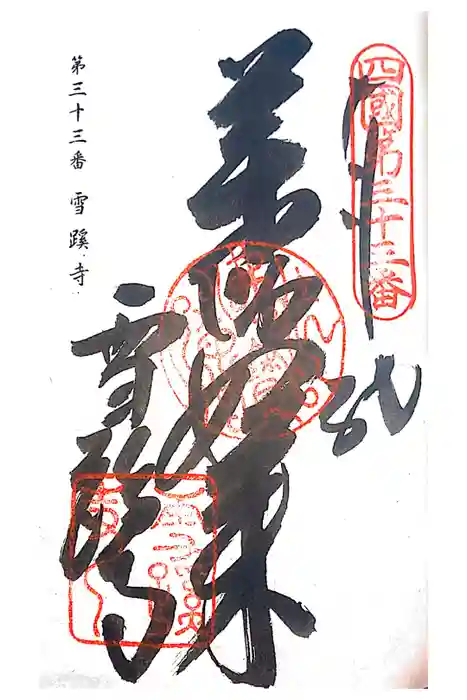 四國第三十三番
奉
納
薬師如来
雪蹊寺
第三十三番 雪蹊寺